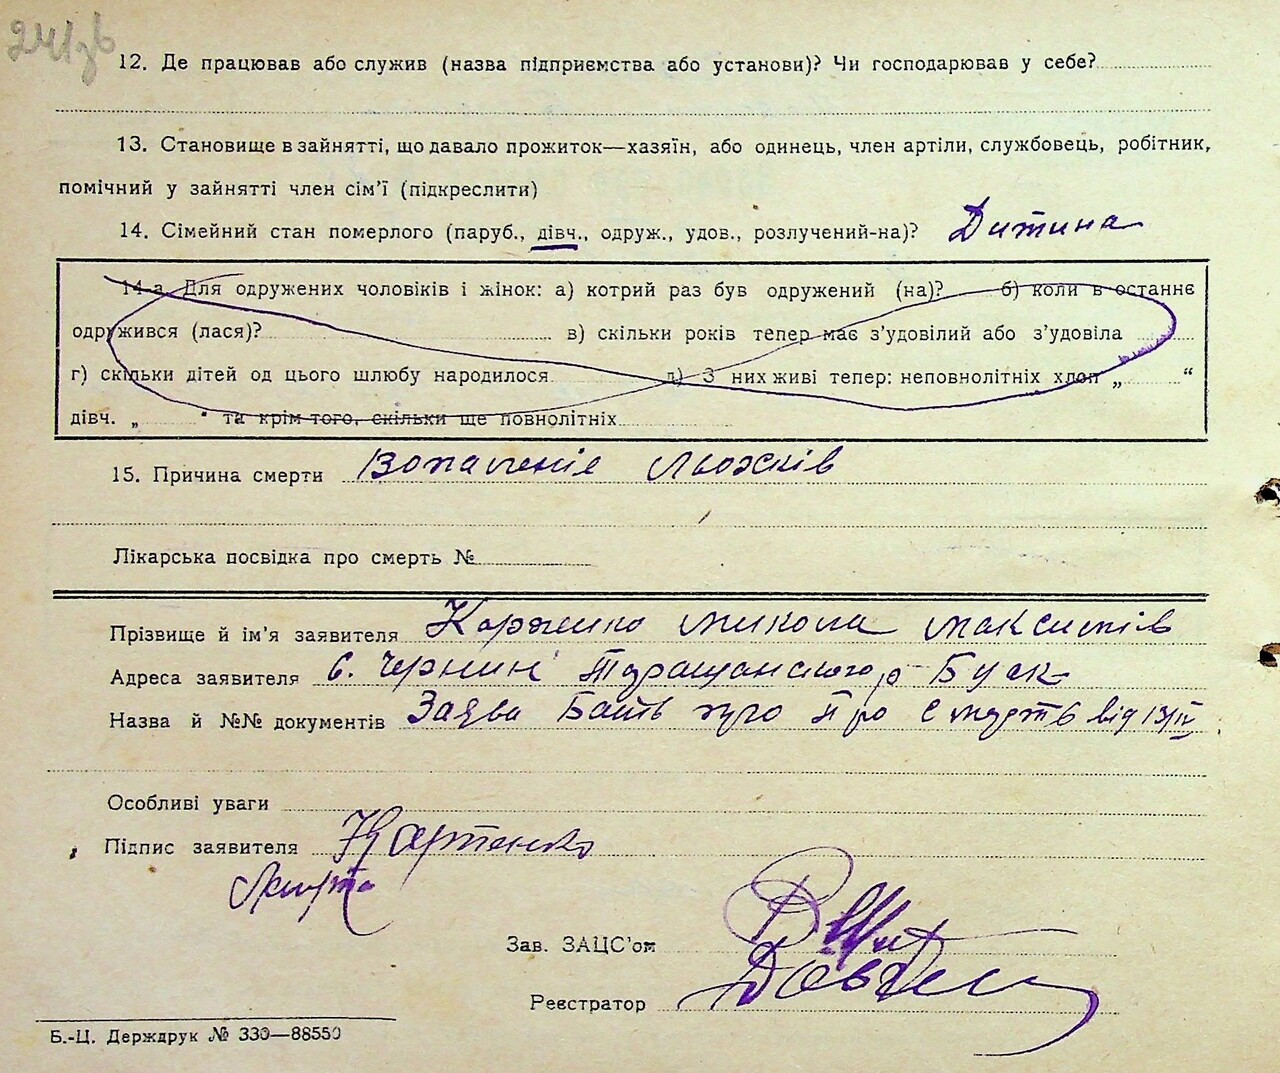 12. Де працював або служив (назва підприємства або установи)? Чи господарював у себе?
13. Становище в зайнятті, що давало прожиток—хазяїн, або одинець, член артіли, службовець, робітник,
помічний у зайнятті член сім'ї (підкреслити)
14. Сімейний стан померлого (паруб., дівч., одруж., удов., розлучений-на)? Дитина
14-а. Для одружених чоловіків і жінок: а) котрий раз був одружений (на)? б) коли в останнє
одружився (лася)? в) скільки років тепер має з'удовілий або з'удовіла
г) скільки дітей од цього шлюбу народилося д) З них живі тепер: неповнолітніх хлоп „ “
дівч. „ “ та крім того, скільки ще повнолітніх
15. Причина смерти Вопаленіє
Лікарська посвідка про смерть №
Прізвище й ім'я заявителя Микола Максимів
Адреса заявителя с. Чернин
Назва й №№ документів Заява про смерть від 13/IV
Особливі уваги
Підпис заявителя
Зав. ЗАЦС'ом
Реєстратор
Б.-Ц. Держдрук № 330—88550